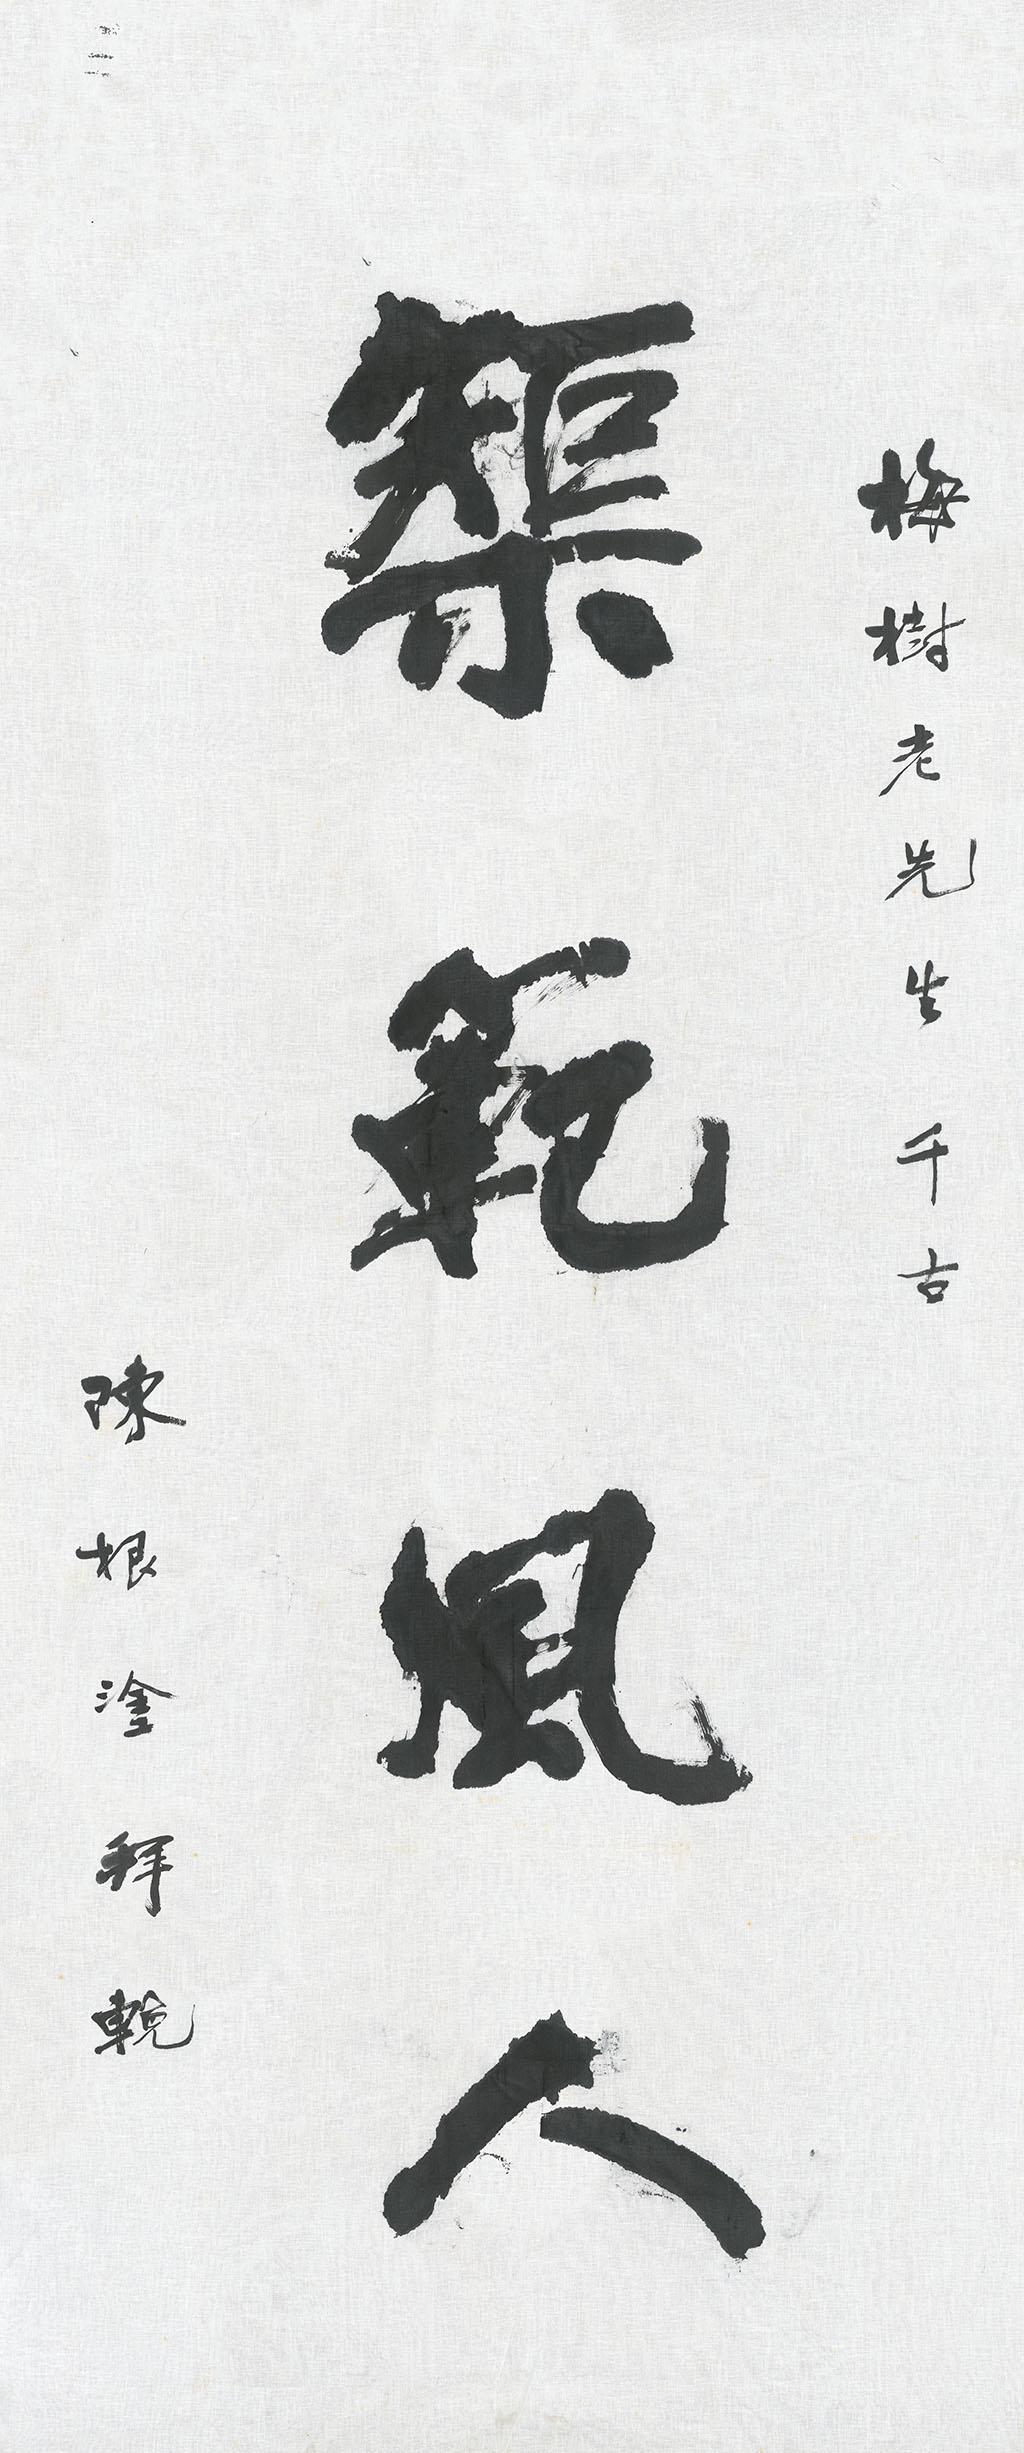 梅樹老先生千古
榘範風人
陳根塗拜輓